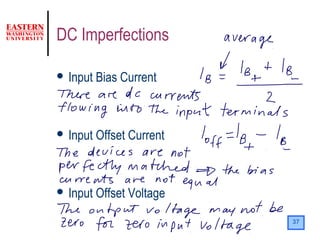 EASTERN
WASHINGTON
UNIVERSITY
DC Imperfections
average
• Input Bias Current
I_B = (I_B+ + I_B-) / 2
There are dc currents
flowing into the input terminals
• Input Offset Current
I_off = I_B+ - I_B-
The devices are not
perfectly matched ⇒ the bias
currents are not equal
• Input Offset Voltage
The output voltage may not be
zero for zero input voltage
37